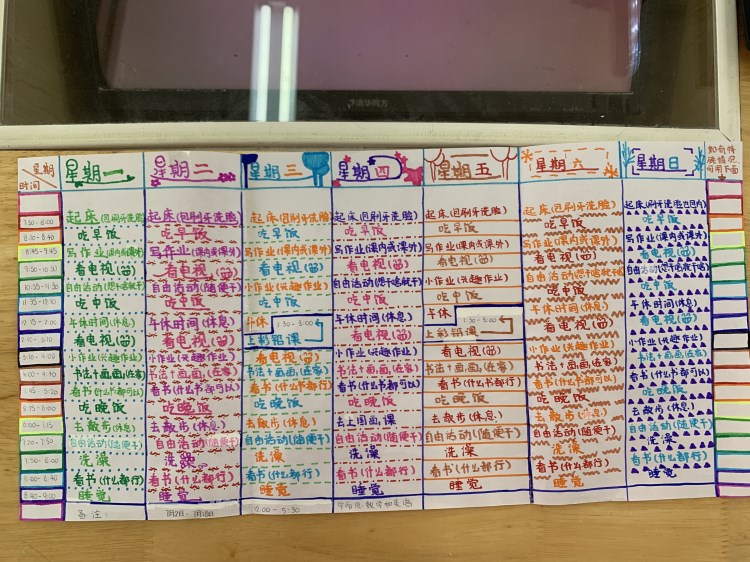 清华同方
星期
时间
星期一
星期二
星期三
星期四
星期五
星期六
星期日
如有特
殊情况,
可用下面
起床(回刷牙洗脸)
起床(回刷牙洗脸)
起床(回刷牙洗脸)
起床(回刷牙洗脸)
起床(回刷牙洗脸)
起床(回刷牙洗脸)
吃早饭
吃早饭
吃早饭
吃早饭
吃早饭
吃早饭
吃早饭
写作业(课内或课外)
写作业(课内或课外)
写作业(课内或课外)
写作业(课内或课外)
写作业(课内或课外)
写作业(课内或课外)
写作业(课内或课外)
看电视(笛)
看电视(笛)
看电视(笛)
看电视(笛)
看电视(笛)
看电视(笛)
看电视(笛)
自由活动(想干啥就干)
自由活动(随便干)
小作业(兴趣作业)
自由活动(想干啥就干)
小作业(兴趣作业)
自由活动(想干啥就干)
自由活动(想干啥就干)
吃中饭
吃中饭
吃中饭
吃中饭
吃中饭
吃中饭
吃中饭
午休时间(休息)
午休时间(休息)
午休
1:30-3:00
午休时间(休息)
午休
1:30-3:00
午休时间(休息)
午休时间(休息)
看电视(笛)
看电视(笛)
上彩铅课
看电视(笛)
上彩铅课
看电视(笛)
看电视(笛)
小作业(兴趣作业)
小作业(兴趣作业)
看电视(笛)
小作业(兴趣作业)
看电视(笛)
小作业(兴趣作业)
小作业(兴趣作业)
书法+画画(在家)
书法+画画(在家)
书法+画画(在家)
书法+画画(在家)
书法+画画(在家)
书法+画画(在家)
书法+画画(在家)
看书(什么书都可以)
看书(什么书都可以)
看书(什么书都行)
看书(什么书都可以)
看书(什么书都行)
看书(什么书都可以)
看书(什么书都可以)
吃晚饭
吃晚饭
吃晚饭
吃晚饭
吃晚饭
吃晚饭
吃晚饭
去散步(休息)
去散步(休息)
去散步(休息)
去上国画课
去散步(休息)
去散步(休息)
去散步(休息)
自由活动(随便干)
自由活动(随便干)
自由活动(随便干)
自由活动(随便干)
自由活动(随便干)
自由活动(随便干)
自由活动(随便干)
洗澡
洗澡
洗澡
洗澡
洗澡
洗澡
洗澡
看书(什么都行)
看书(什么都行)
看书(什么都行)
看书(什么都行)
看书(什么都行)
看书(什么都行)
看书(什么都行)
睡觉
睡觉
睡觉
睡觉
睡觉
睡觉
睡觉
备注: